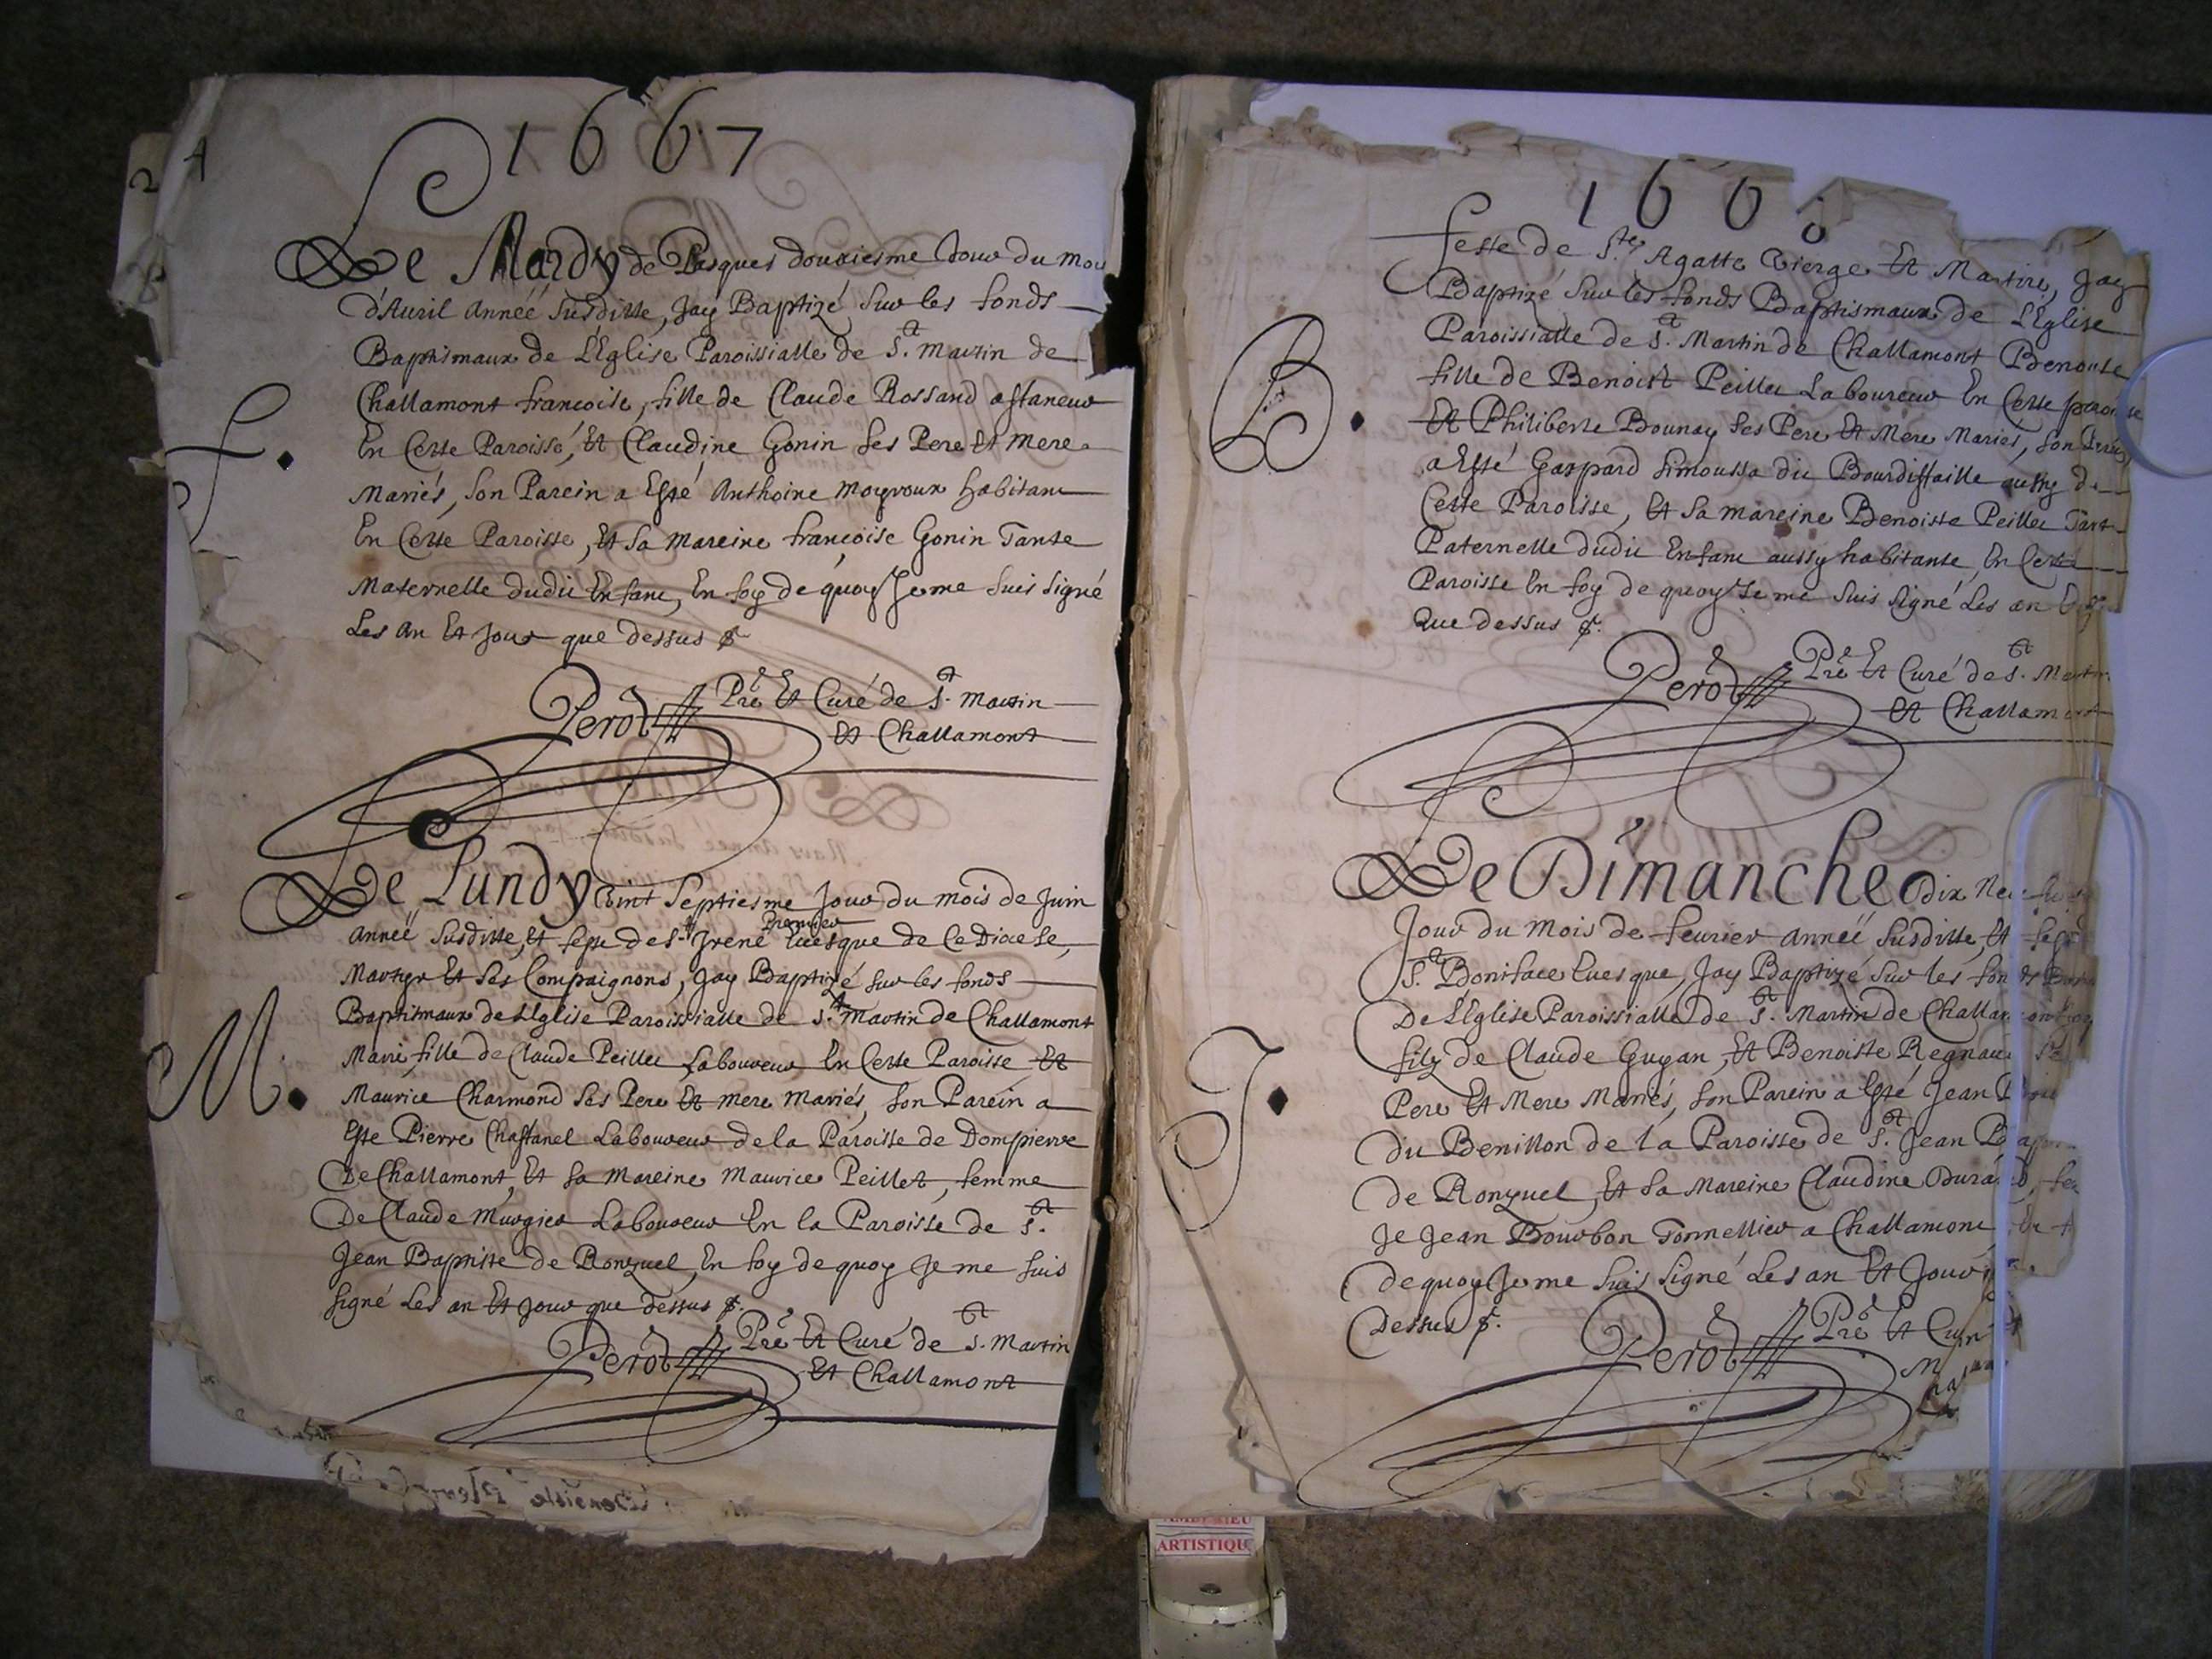 1667
Le Mardy de Pasques douxiesme Jour du mois
d'Auril Année susditte, Jay Baptizé sur les fonds
Baptismaux de L'Eglise Paroissialle de St. Martin de
Challamont francoise, fille de Claude Rossand astaneur
En Cette Paroisse, Et Claudine Gonin ses Pere Et Mere
Mariés, son Parein a Esté Anthoine Moyroux habitant
En Cette Paroisse, Et sa Mareine francoise Gonin Tante
Maternelle dudit Enfant, En foy de quoy Je me suis signé
Les An Et Jour que dessus
f.
Perod Pre Et Curé de St. Martin
Et Challamont
Le Lundy vint septiesme Jour du mois de Juin
Année susditte, Et feste de St Irené Premier Euesque de Ce Diocese,
Martyr Et ses Compaignons, Jay Baptizé sur les fonds
Baptismaux de L'Eglise Paroissialle de St. Martin de Challamont
Marie fille de Claude Peillet Laboureur En Cette Paroisse Et
Maurice Charmond ses Pere Et mere mariés, son Parein a
Esté Pierre Chastanel Laboureur de la Paroisse de Dompierre
De Challamont, Et sa Mareine Maurice Peillet, femme
De Claude Murgier Laboureur En la Paroisse de St.
Jean Baptiste de Ronzuel, En foy de quoy Je me suis
signé Les an Et Jour que dessus
M.
Perod Pre Et Curé de St. Martin
Et Challamont
1668
feste de Ste Agatte Vierge Et Martire, Jay
Baptizé sur les fonds Baptismaux de L'Eglise
Paroissialle de St. Martin de Challamont Benoiste
fille de Benoist Peillet Laboureur En Cette paroisse
Et Philiberte Bounay ses Pere Et Mere Mariés, son Parein
a Esté Gaspard Simousse du Bourdissaille aussy de
Cette Paroisse, Et sa mareine Benoiste Peillet Tant
Paternelle dudit Enfant aussy habitante En Cette
Paroisse En foy de quoy Je me suis signé Les an Et
Que dessus
B.
Perod Pre Et Curé de St. Martin
Et Challamont
Le Dimanche dix Neufuies
Jour du Mois de feurier Année susditte, Et feste
St. Boniface Euesque, Jay Baptizé sur les fonds
De L'Eglise Paroissialle de St. Martin de Challamont
filz de Claude Guyan, Et Benoiste Regnau
Pere Et Mere Mariés, son Parein a Esté Jean
du Benillon de la Paroisse de St. Jean Bap
de Ronzuel, Et sa Mareine Claudine Durand
Je Jean Bourbon Tonnellier a Challamont En
de quoy Je me suis signé Les an Et Jour
Dessus
J.
Perod Pre Et Cur
M
ARTISTIQU